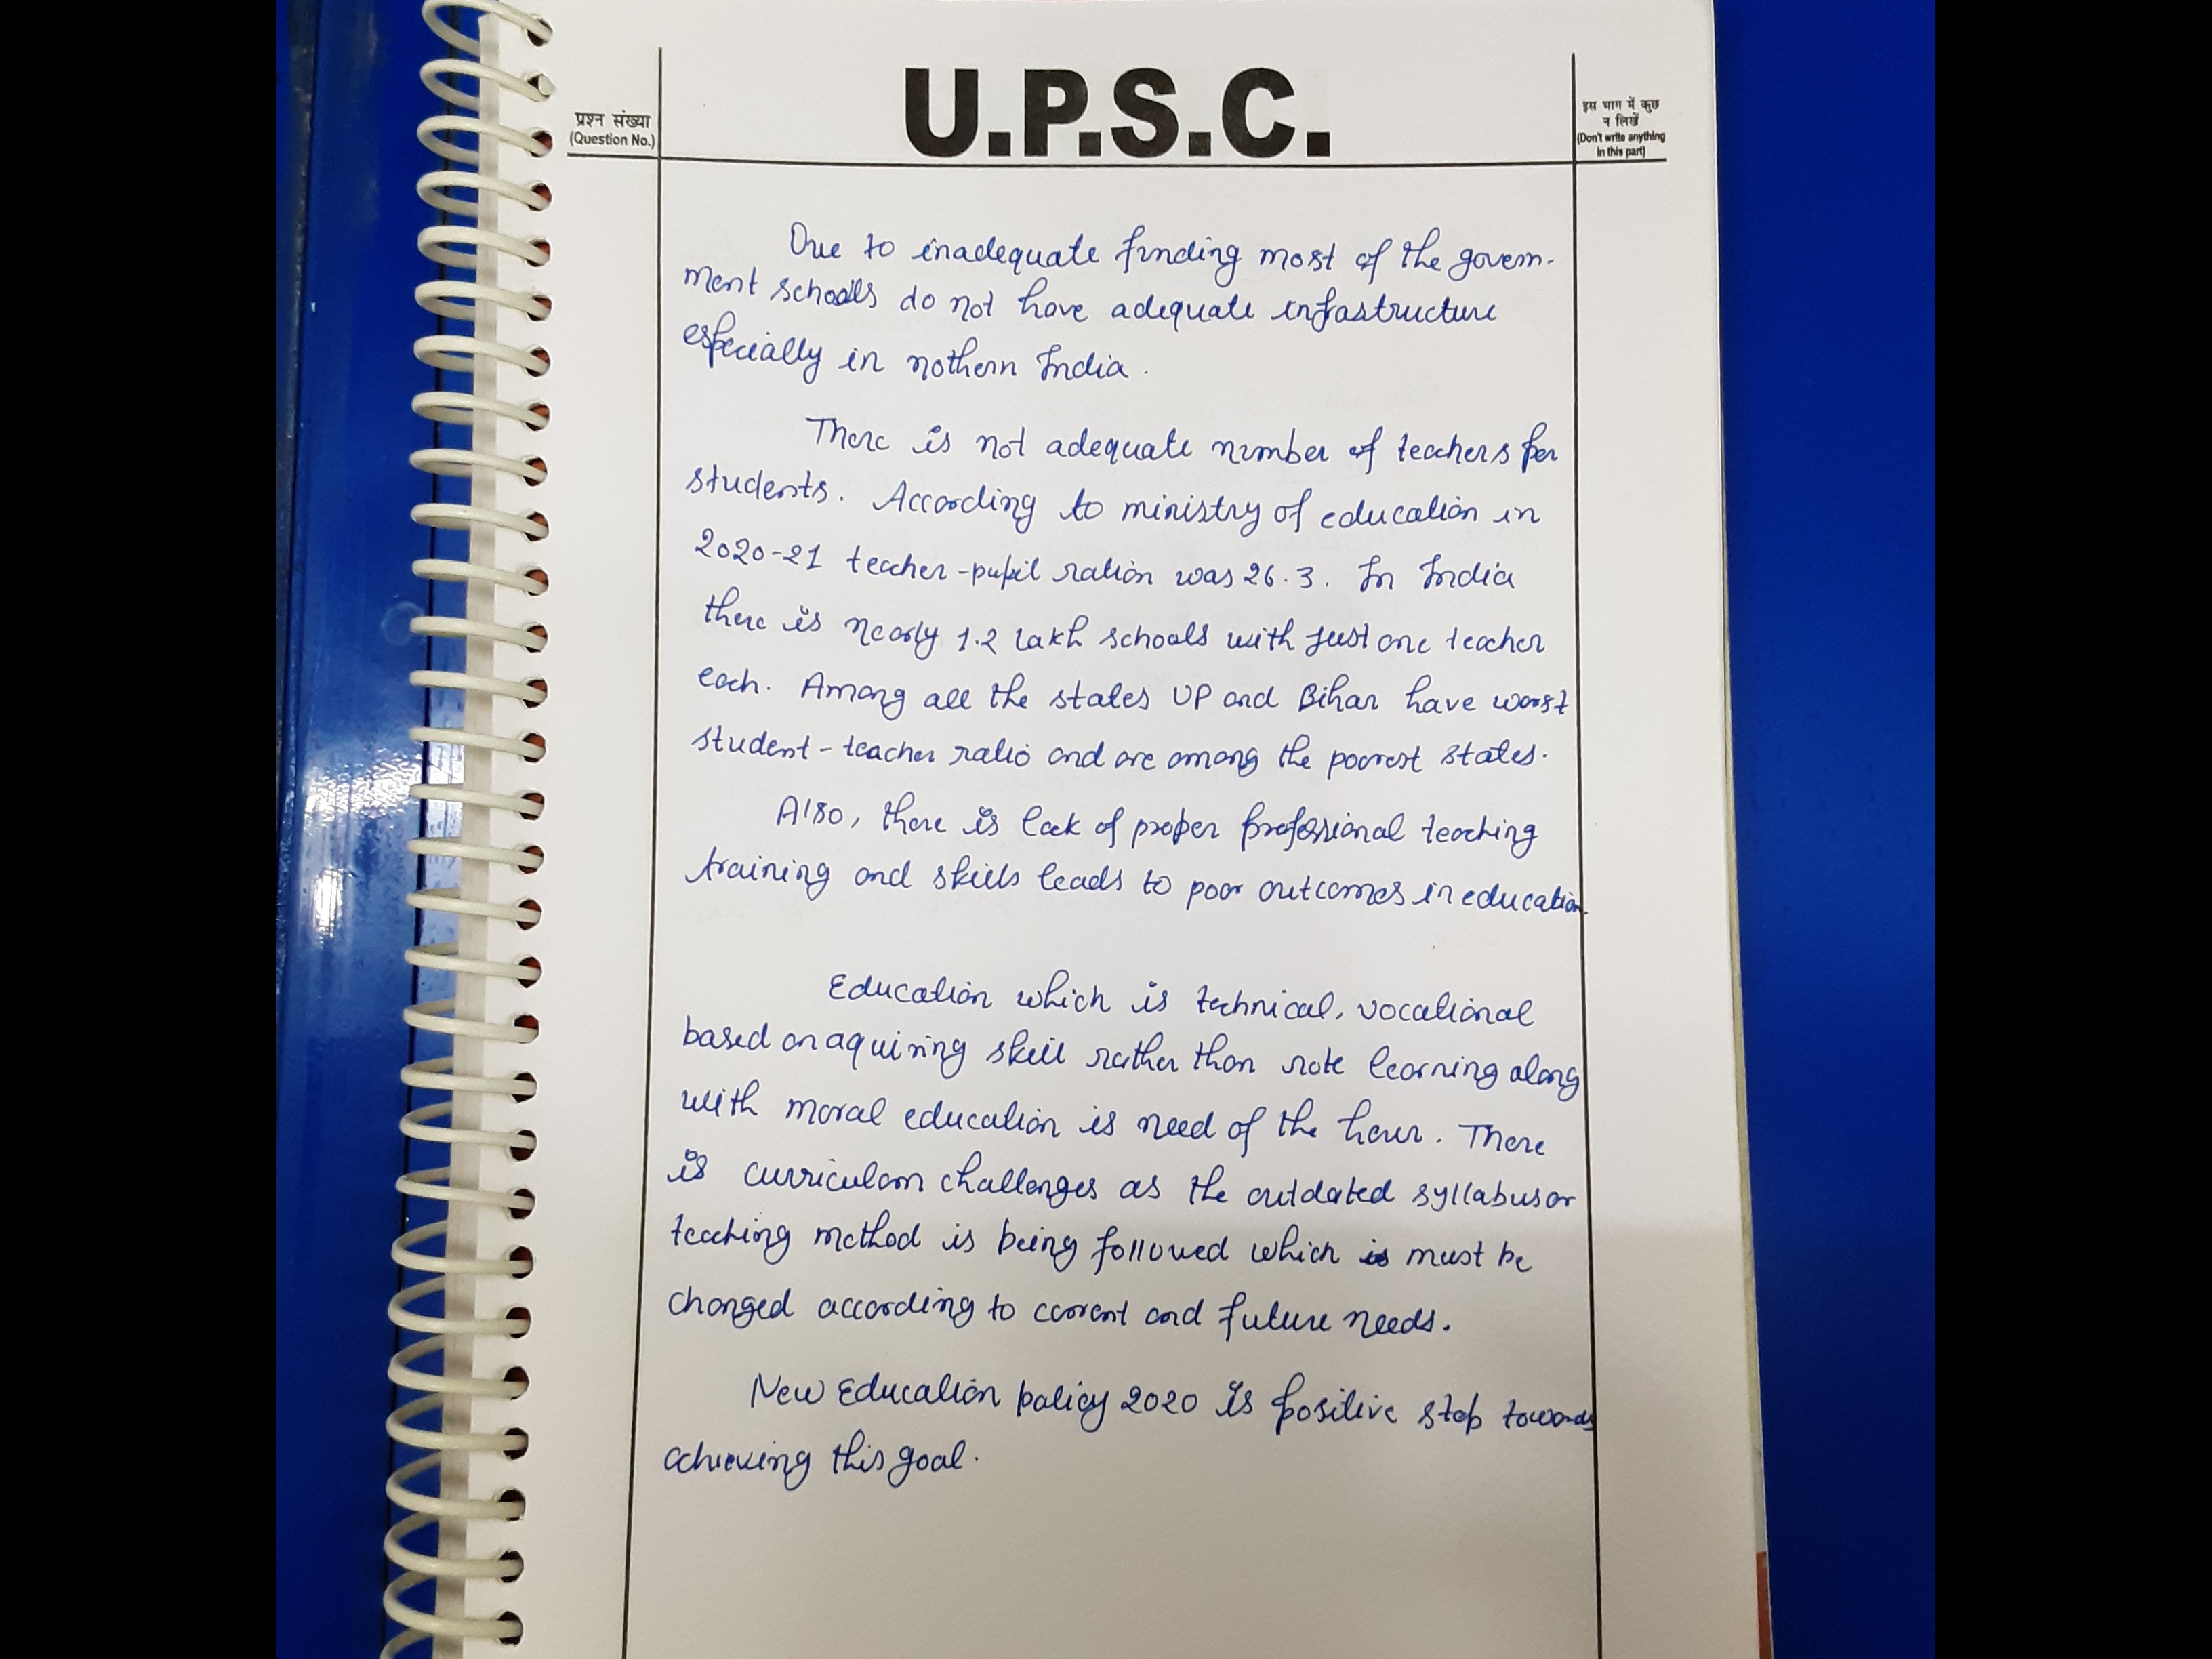 U.P.S.C.
प्रश्न संख्या
(Question No.)
इस भाग में कुछ
न लिखें
(Don't write anything
in this part)
Due to inadequate funding most of the govern-
ment schools do not have adequate infrastructure
especially in nothern India.
There is not adequate number of teachers per
students. According to ministry of education in
2020-21 teacher-pupil ration was 26.3. In India
there is nearly 1.2 lakh schools with just one teacher
each. Among all the states UP and Bihar have worst
student-teacher ratio and are among the poorest states.
Also, there is lack of proper professional teaching
training and skills leads to poor outcomes in education.
Education which is technical, vocational
based on aquiring skill rather than rote learning along
with moral education is need of the hour. There
is curriculam challenges as the outdated syllabus or
teaching method is being followed which is must be
changed according to current and future needs.
New Education policy 2020 is positive step towards
achieving this goal.